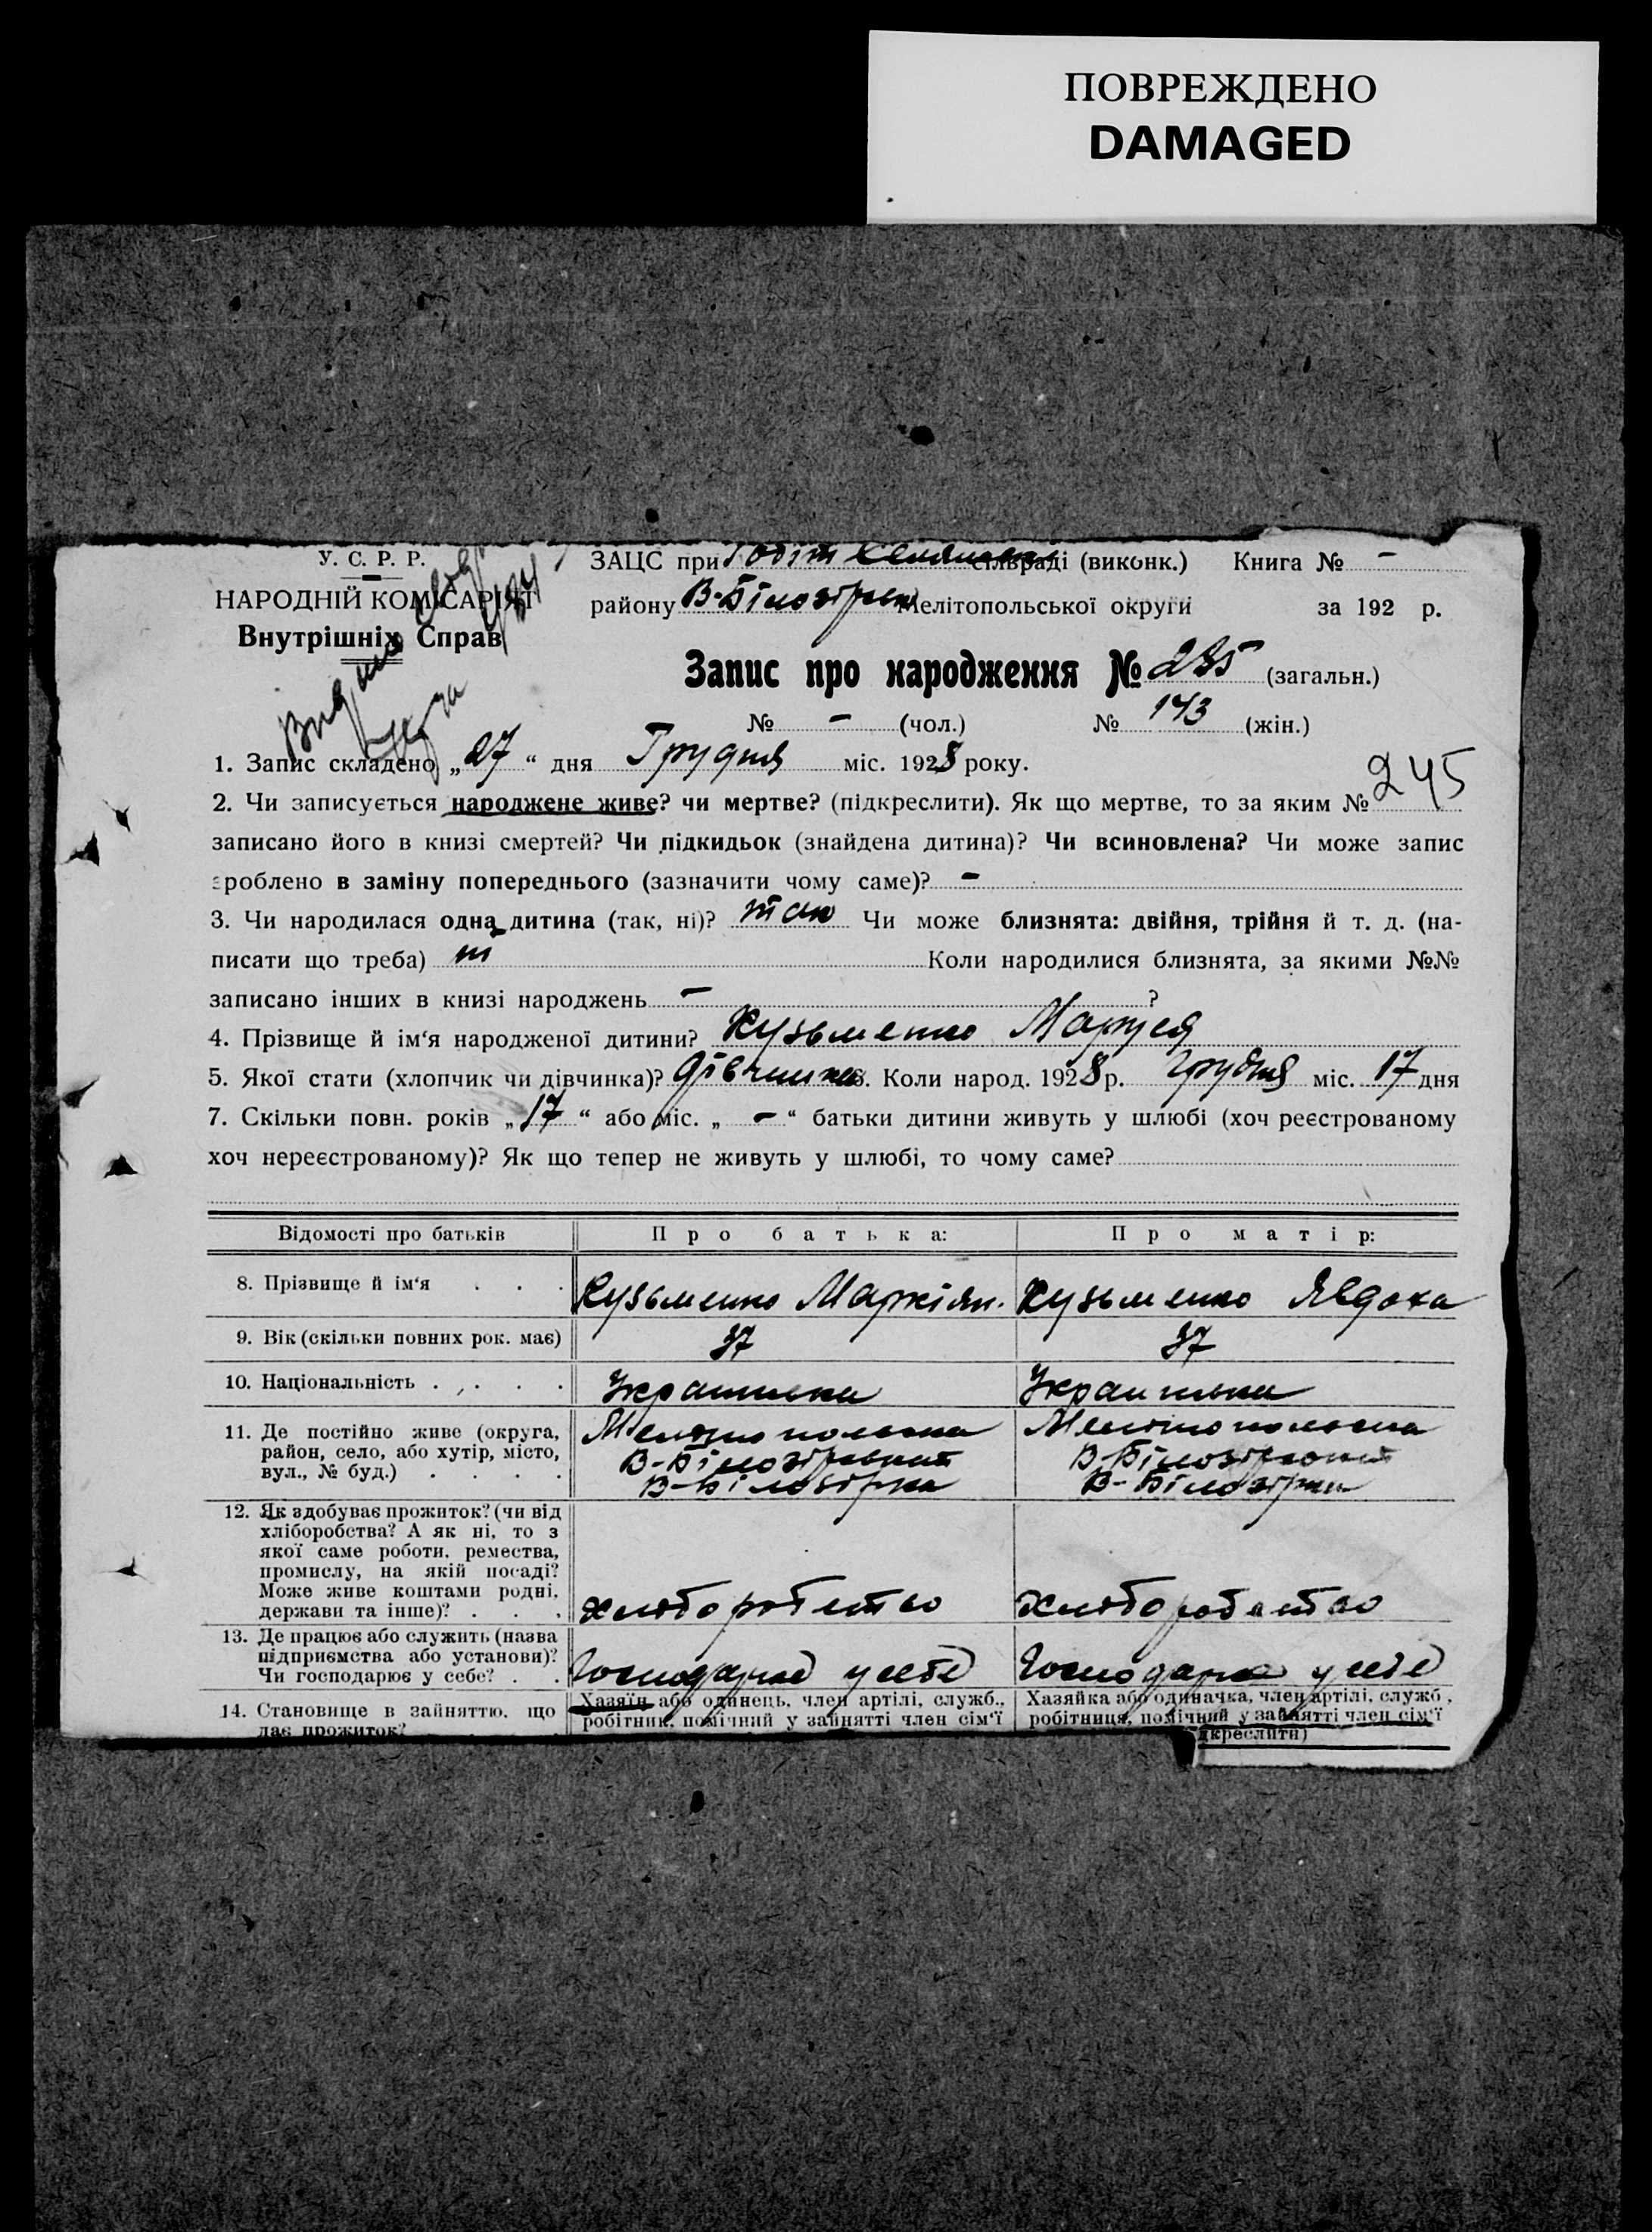 ПОВРЕЖДЕНО
DAMAGED
У. С. Р. Р.
НАРОДНІЙ КОМІСАРІЯТ
Внутрішніх Справ
ЗАЦС при сільраді (виконк.) Книга № –
району В-Білозірск Мелітопольської округи за 192 р.
Запис про народження № 235 (загальн.)
№ – (чол.) № 143 (жін.)
1. Запис складено „27“ дня Грудня міс. 1928 року.
245
2. Чи записується народжене живе? чи мертве? (підкреслити). Як що мертве, то за яким №
записано його в книзі смертей? Чи підкидьок (знайдена дитина)? Чи всиновлена? Чи може запис
зроблено в заміну попереднього (зазначити чому саме)? –
3. Чи народилася одна дитина (так, ні)? так Чи може близнята: двійня, трійня й т. д. (на-
писати що треба) Коли народилися близнята, за якими №№
записано інших в книзі народжень – ?
4. Прізвище й ім‘я народженої дитини? Кузьменко Маруся
5. Якої стати (хлопчик чи дівчинка)? дівчинка 6. Коли народ. 1928 р. Грудня міс. 17 дня
7. Скільки повн. років „17“ або міс. „–“ батьки дитини живуть у шлюбі (хоч реєстрованому
хоч нереєстрованому)? Як що тепер не живуть у шлюбі, то чому саме?
Відомості про батьків Про батька: Про матір:
8. Прізвище й ім‘я . . . Кузьменко Маркіян. Кузьменко Явдоха
9. Вік (скільки повних рок. має) 37 37
10. Національність . . . . Українська Українська
11. Де постійно живе (округа, Мелітопольська Мелітопольська
район, село, або хутір, місто, В-Білозірський В-Білозірський
вул., № буд.) . . . . В-Білозірка В-Білозірка
12. Як здобуває прожиток? (чи від
хліборобства? А як ні, то з
якої саме роботи, ремества,
промислу, на якій посаді?
Може живе коштами родні,
держави та інше)? . . . хліборобство хліборобство
13. Де працює або служить (назва
підприємства або установи)?
Чи господарює у себе? . . Господарює у себе Господарює у себе
14. Становище в зайняттю, що Хазяїн або одинець, член артілі, служб., Хазяйка або одиначка, член артілі, служб.,
дає прожиток? робітник, помічний у зайнятті член сім‘ї робітниця, помічний у зайнятті член сім‘ї
дкреслити)